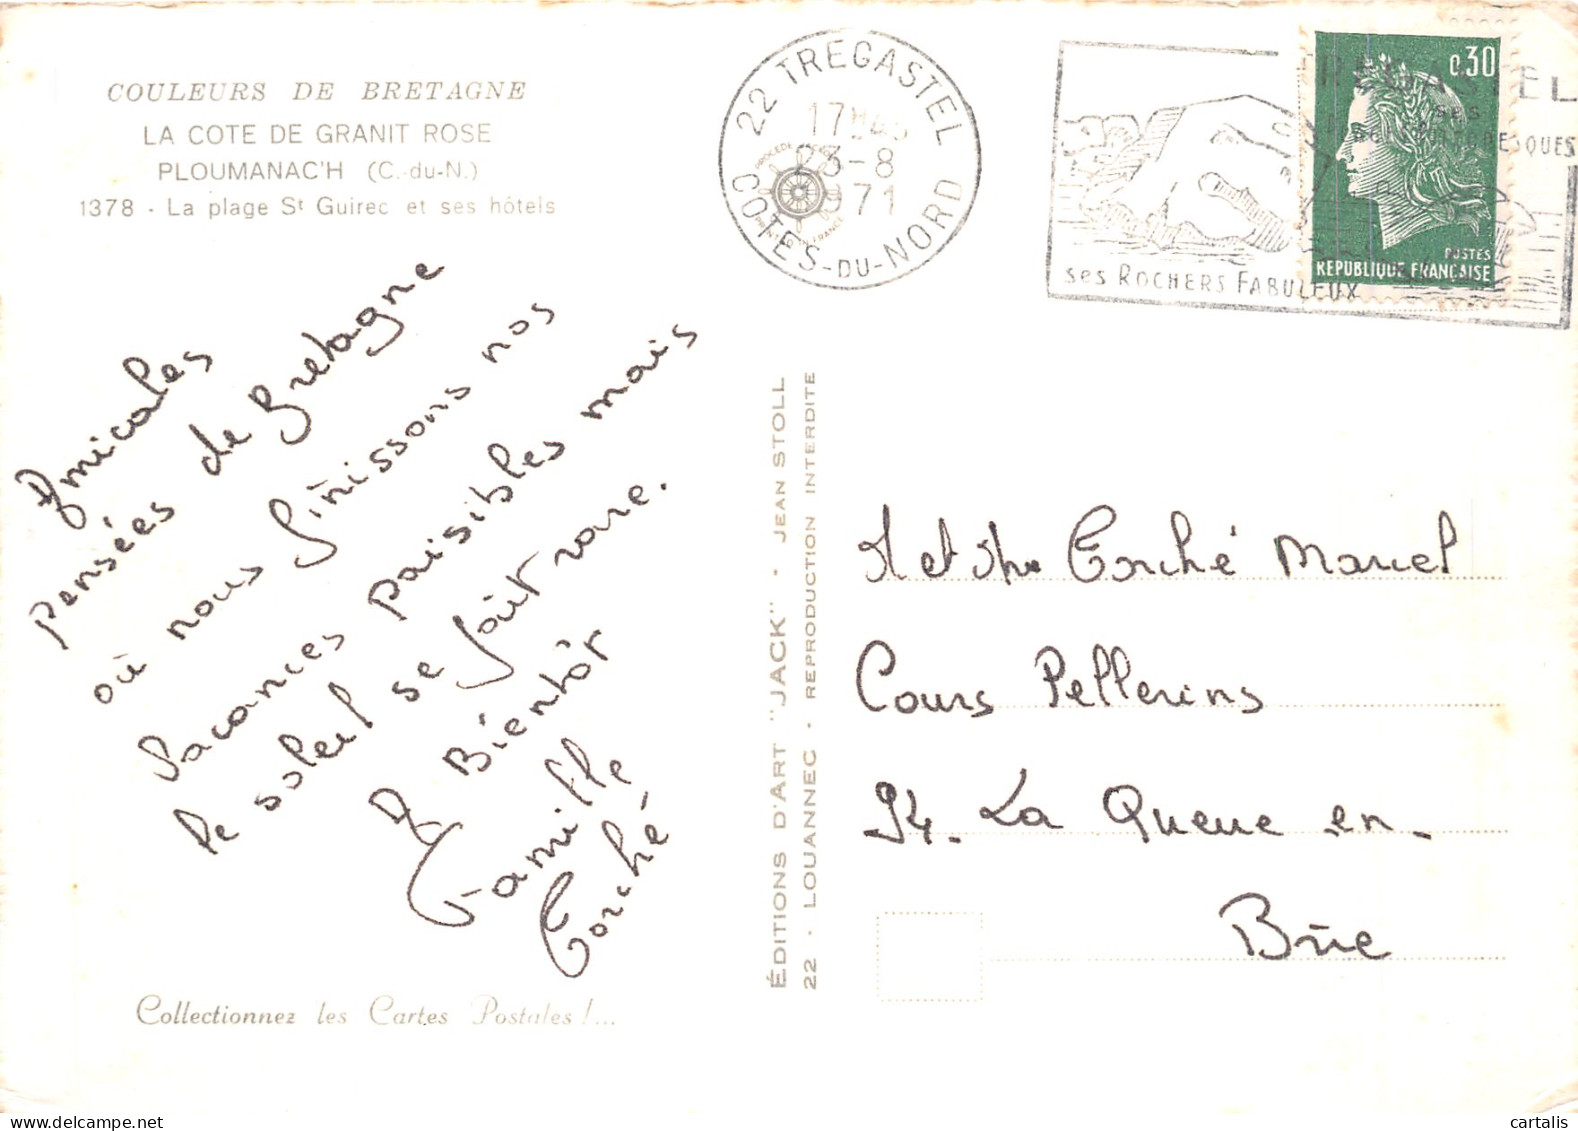 COULEURS DE BRETAGNE
LA COTE DE GRANIT ROSE
PLOUMANAC'H (C.-du-N.)
1378 - La plage St Guirec et ses hôtels
Amicales
pensées de Bretagne
où nous finissons nos
vacances paisibles mais
le soleil se fait rare.
A Bientôt
Famille
Corché
Collectionnez les Cartes Postales !...
ÉDITIONS D'ART "JACK" - JEAN STOLL
22 - LOUANNEC - REPRODUCTION INTERDITE
22 TREGASTEL
17H45
23-8
1971
COTES-DU-NORD
TREGASTEL
ses
ses ROCHERS FABULEUX
0,30
POSTES
REPUBLIQUE FRANÇAISE
M et Mme Corché Marcel
Cours Pellerins
94. La Queue en-
Brie
cartalis